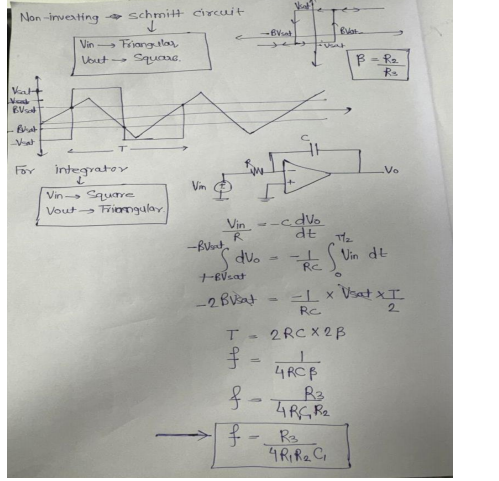 Non-inverting → Schmitt circuit
Vin → Triangular
Vout → Square
Vsat
-BVsat
BVsat
-Vsat
β = R2/R3
Vsat
BVsat
-BVsat
-Vsat
T
For integrator
Vin → Square
Vout → Triangular
C
R
Vin
Vo
Vin/R = -C dVo/dt
∫ dVo = -1/RC ∫ Vin dt
-BVsat
T/2
0
-2BVsat = -1/RC × Vsat × T/2
T = 2RC × 2β
f = 1/4RCβ
f = R3/4RC1R2
→ f = R3/4R1R2C1